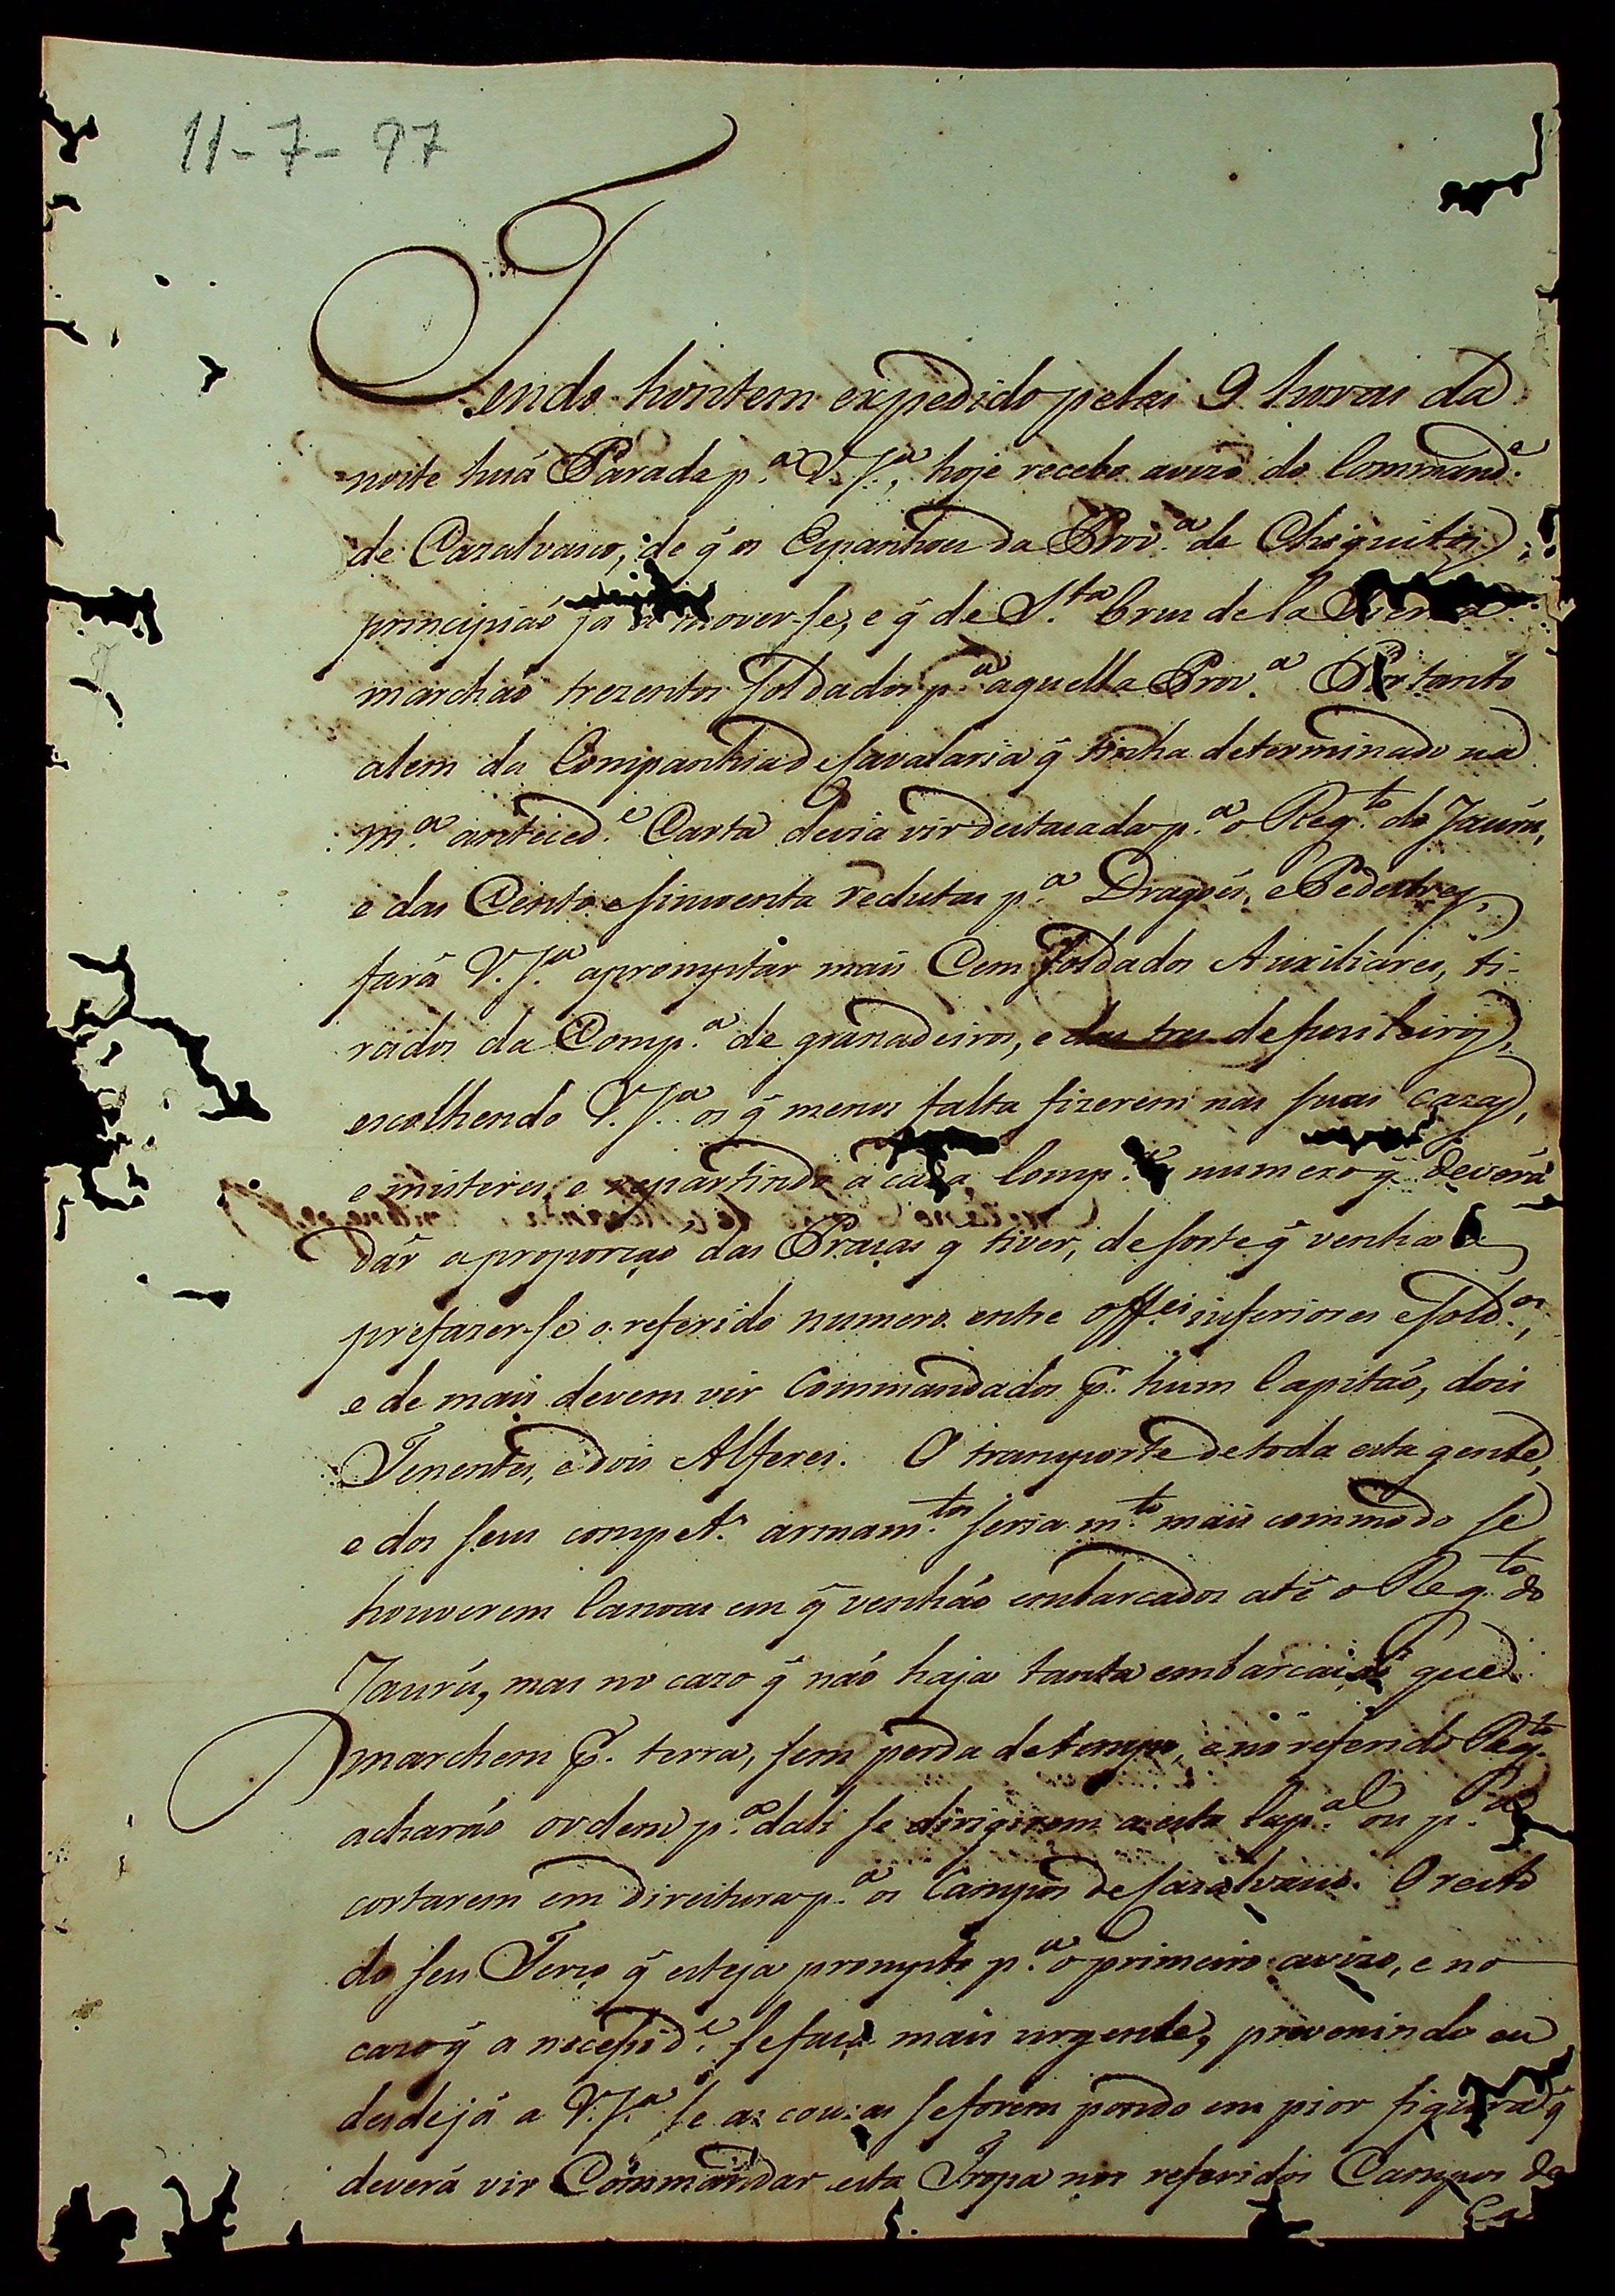 11-7-97
Tendo hontem expedido pelas 9 horas da
noite huã Parada p.ª V. S.ª, hoje recebo avizo do Command.e
de Cazalvasco, de q̃ os Espanhoes da Prov.ª de Chiquitos
principiaõ já a mover-se, e q̃ de S.ta Crus de la Sierra
marchaõ trezentos Soldados p.ª aquella Prov.ª Portanto
alem da Companhia de Cavalaria q̃ tinha determinado na
m.ª anteced.e Carta devia vir destacada p.ª o Reg.to do Jaurú,
e das Cento e sincoenta reclutas p.ª Dragoẽs, e Pedestres,
fará V. S.ª apromptar mais Cem Soldados Auxiliares, ti-
rados da Comp.ª de granadeiros, e das tres de fuzileiros,
escolhendo V. S.ª os q̃ menos falta fizerem nas suas cazas,
e misteres, e repartindo a cada Comp.ª numero q̃ deverá
dár a proporçaõ das Praças q̃ tiver, de sorte q̃ venha a
prefazer-se o referido numero entre off.es inferiores e sold.os,
e de mais devem vir Commandados p̃. hum Capitaõ, dois
Tenentes, e dois Alferes. O transporte de toda esta gente,
e dos seus compet.s armam.tos seria m.to mais commodo se
houverem Canoas em q̃ venhaõ embarcados até o Reg.to do
Jaurú, mas no cazo q̃ naõ haja tanta embarcaçaõ que
marchem p̃. terra, sem perda de tempo, e no referido Reg.to
acharáõ ordem p.ª dali se dirigirem a esta Cap.al ou p.ª
cortarem em direitura p.ª os Campos de Cazalvasco. O resto
do seu Terço q̃ esteja prompto p.ª o primeiro avizo, e no
cazo q̃ a necessid.e se faça mais urgente, prevenindo eu
desde já a V. S.ª se as couzas se forem pondo em pior figura q̃
deverá vir Commandar esta Tropa nos referidos Campos de
Ca